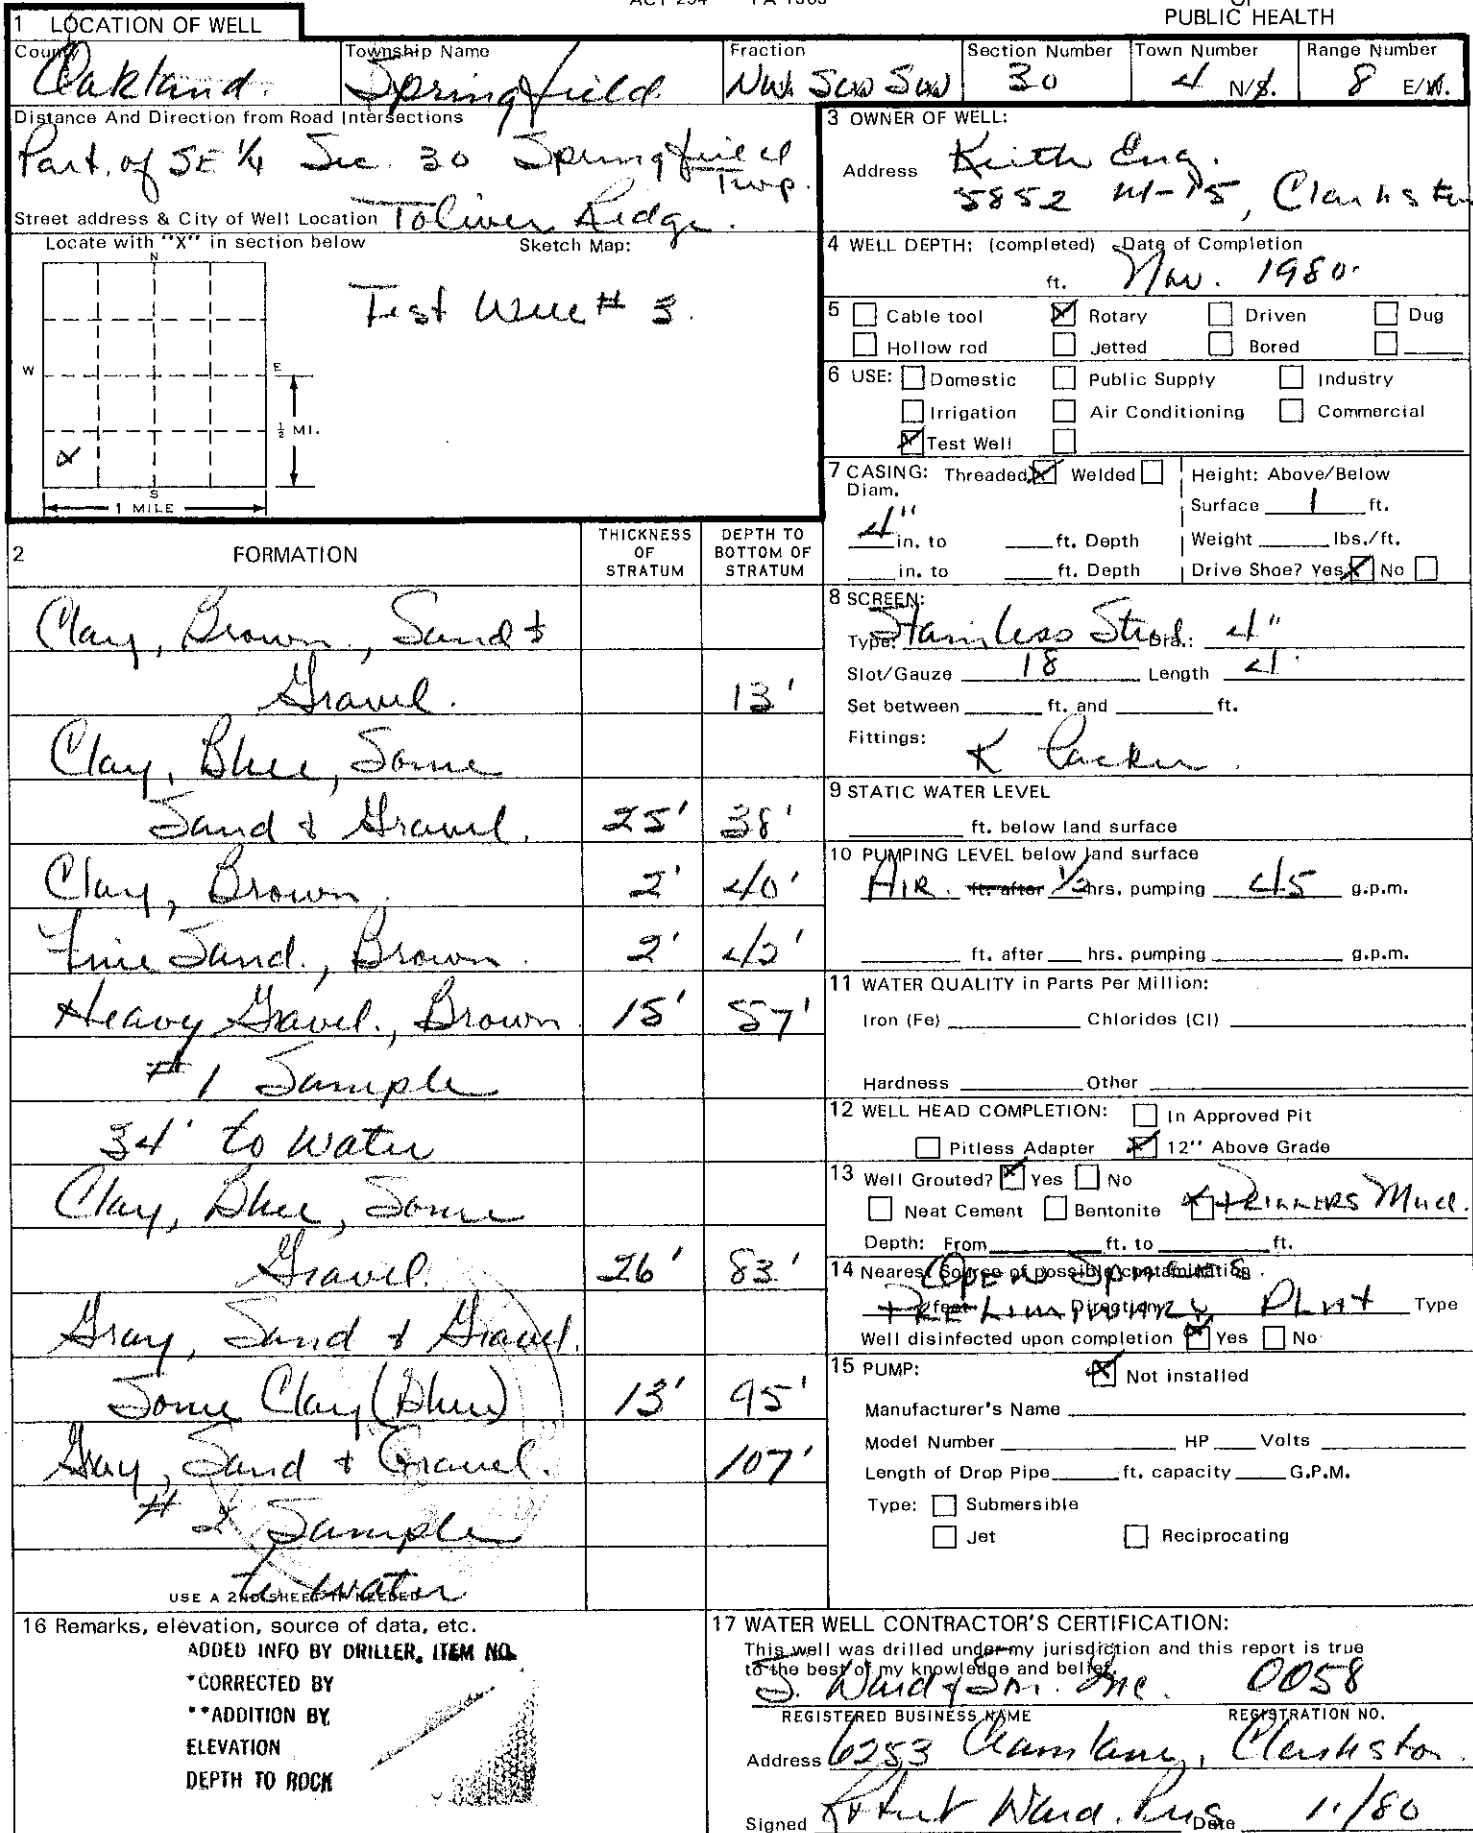 PUBLIC HEALTH
1 LOCATION OF WELL
County Oakland. Township Name Springfield. Fraction NW SW SW Section Number 30 Town Number 4 N/S. Range Number 8 E/W.
Distance And Direction from Road Intersections
Part. of SE 1/4 Sec. 30 Springfield Twp.
Street address & City of Well Location Toliver Ridge.
Locate with "X" in section below Sketch Map:
N
W E
S
X
1/2 MI.
1 MILE
Test Well # 3.
3 OWNER OF WELL:
Address Keith Eng.
5852 M-15, Clarkston
4 WELL DEPTH: (completed) Date of Completion
ft. Nov. 1980.
5 Cable tool X Rotary Driven Dug
Hollow rod Jetted Bored
6 USE: Domestic Public Supply Industry
Irrigation Air Conditioning Commercial
X Test Well
7 CASING: Threaded X Welded Height: Above/Below
Diam. Surface 1 ft.
4" in. to ft. Depth Weight lbs./ft.
in. to ft. Depth Drive Shoe? Yes X No
8 SCREEN:
Type: Stainless Steel Dia.: 4"
Slot/Gauze 18 Length 4'
Set between ft. and ft.
Fittings: K Packer.
9 STATIC WATER LEVEL
ft. below land surface
10 PUMPING LEVEL below land surface
AIR. ft. after 1/2 hrs. pumping 45 g.p.m.
ft. after hrs. pumping g.p.m.
11 WATER QUALITY in Parts Per Million:
Iron (Fe) Chlorides (Cl)
Hardness Other
12 WELL HEAD COMPLETION: In Approved Pit
Pitless Adapter X 12" Above Grade
13 Well Grouted? X Yes No
Neat Cement Bentonite X Drillers Mud.
Depth: From ft. to ft.
14 Nearest Source of possible contamination
OPEN SPACES
feet Direction Type
PRELIMINARY PLAT
Well disinfected upon completion X Yes No
15 PUMP: X Not installed
Manufacturer's Name
Model Number HP Volts
Length of Drop Pipe ft. capacity G.P.M.
Type: Submersible
Jet Reciprocating
2 FORMATION THICKNESS OF STRATUM DEPTH TO BOTTOM OF STRATUM
Clay, Brown, Sand &
Gravel. 13'
Clay, Blue, Some
Sand & Gravel. 25' 38'
Clay, Brown 2' 40'
Fine Sand., Brown. 2' 42'
Heavy Gravel., Brown. 15' 57'
# 1 Sample
34' to Water
Clay, Blue, Some
Gravel. 26' 83'
Gray, Sand & Gravel.
Some Clay (Blue) 13' 95'
Gray, Sand & Gravel. 107'
# 2 Sample
to water
USE A 2ND SHEET IF NEEDED
16 Remarks, elevation, source of data, etc.
ADDED INFO BY DRILLER, ITEM NO.
*CORRECTED BY
**ADDITION BY
ELEVATION
DEPTH TO ROCK
17 WATER WELL CONTRACTOR'S CERTIFICATION:
This well was drilled under my jurisdiction and this report is true
to the best of my knowledge and belief.
J. Ward & Son. Inc. 0058
REGISTERED BUSINESS NAME REGISTRATION NO.
Address 6253 Clarkston.
Signed Robert Ward. Pres Date 11/80